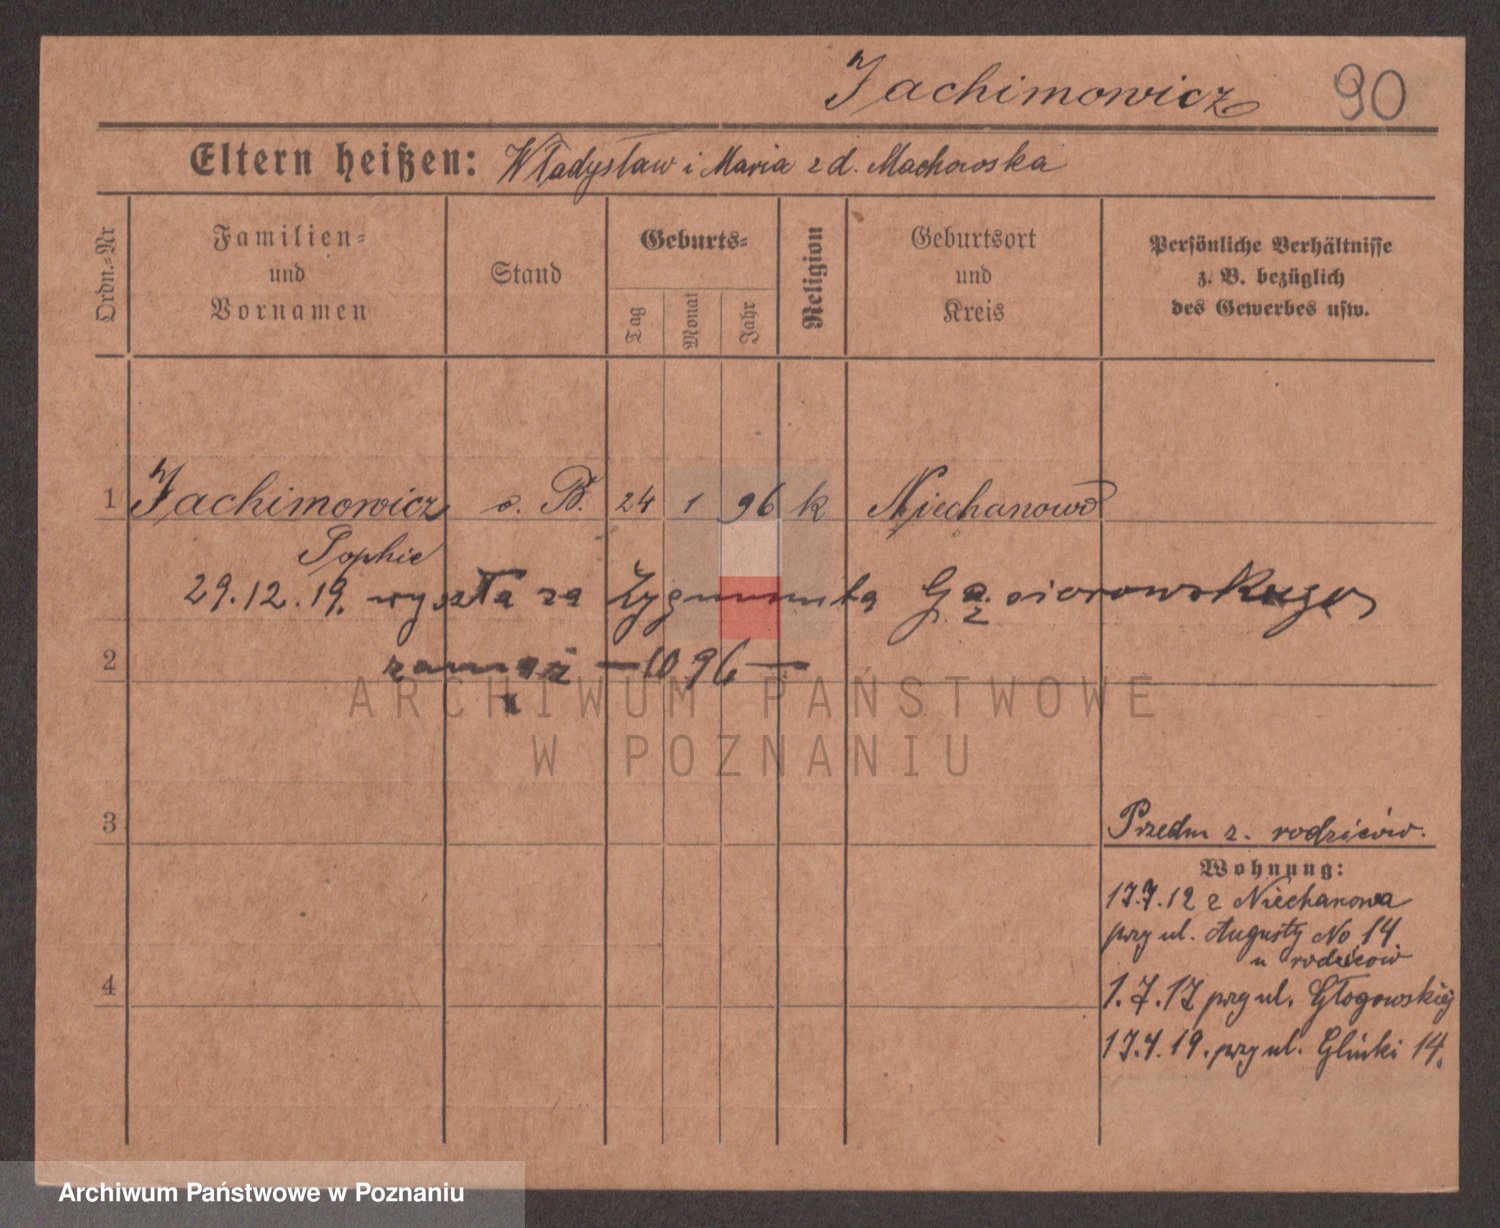 Jachimowicz 90
Eltern heißen: Władysław i Maria z d. Machowska
Ordn.-Nr
Familien- und Vornamen
Stand
Geburts-
Tag
Monat
Jahr
Religion
Geburtsort und Kreis
Persönliche Verhältnisse z. B. bezüglich des Gewerbes usw.
1 Jachimowicz o. B. 24 1 96 k Niechanowo
Sophie
29.12.19. wyszła za Zygmunta Gąsiorowskiego
2 zamąż — 10 96 —
3
Przedm z. rodziców.
Wohnung:
17.7.12 z Niechanowa
przy ul. Augusty No 14
u rodziców
4
1.7.17 przy ul. Głogowskiej
17.4.19. przy ul. Glinki 14.
ARCHIWUM PAŃSTWOWE
W POZNANIU
Archiwum Państwowe w Poznaniu